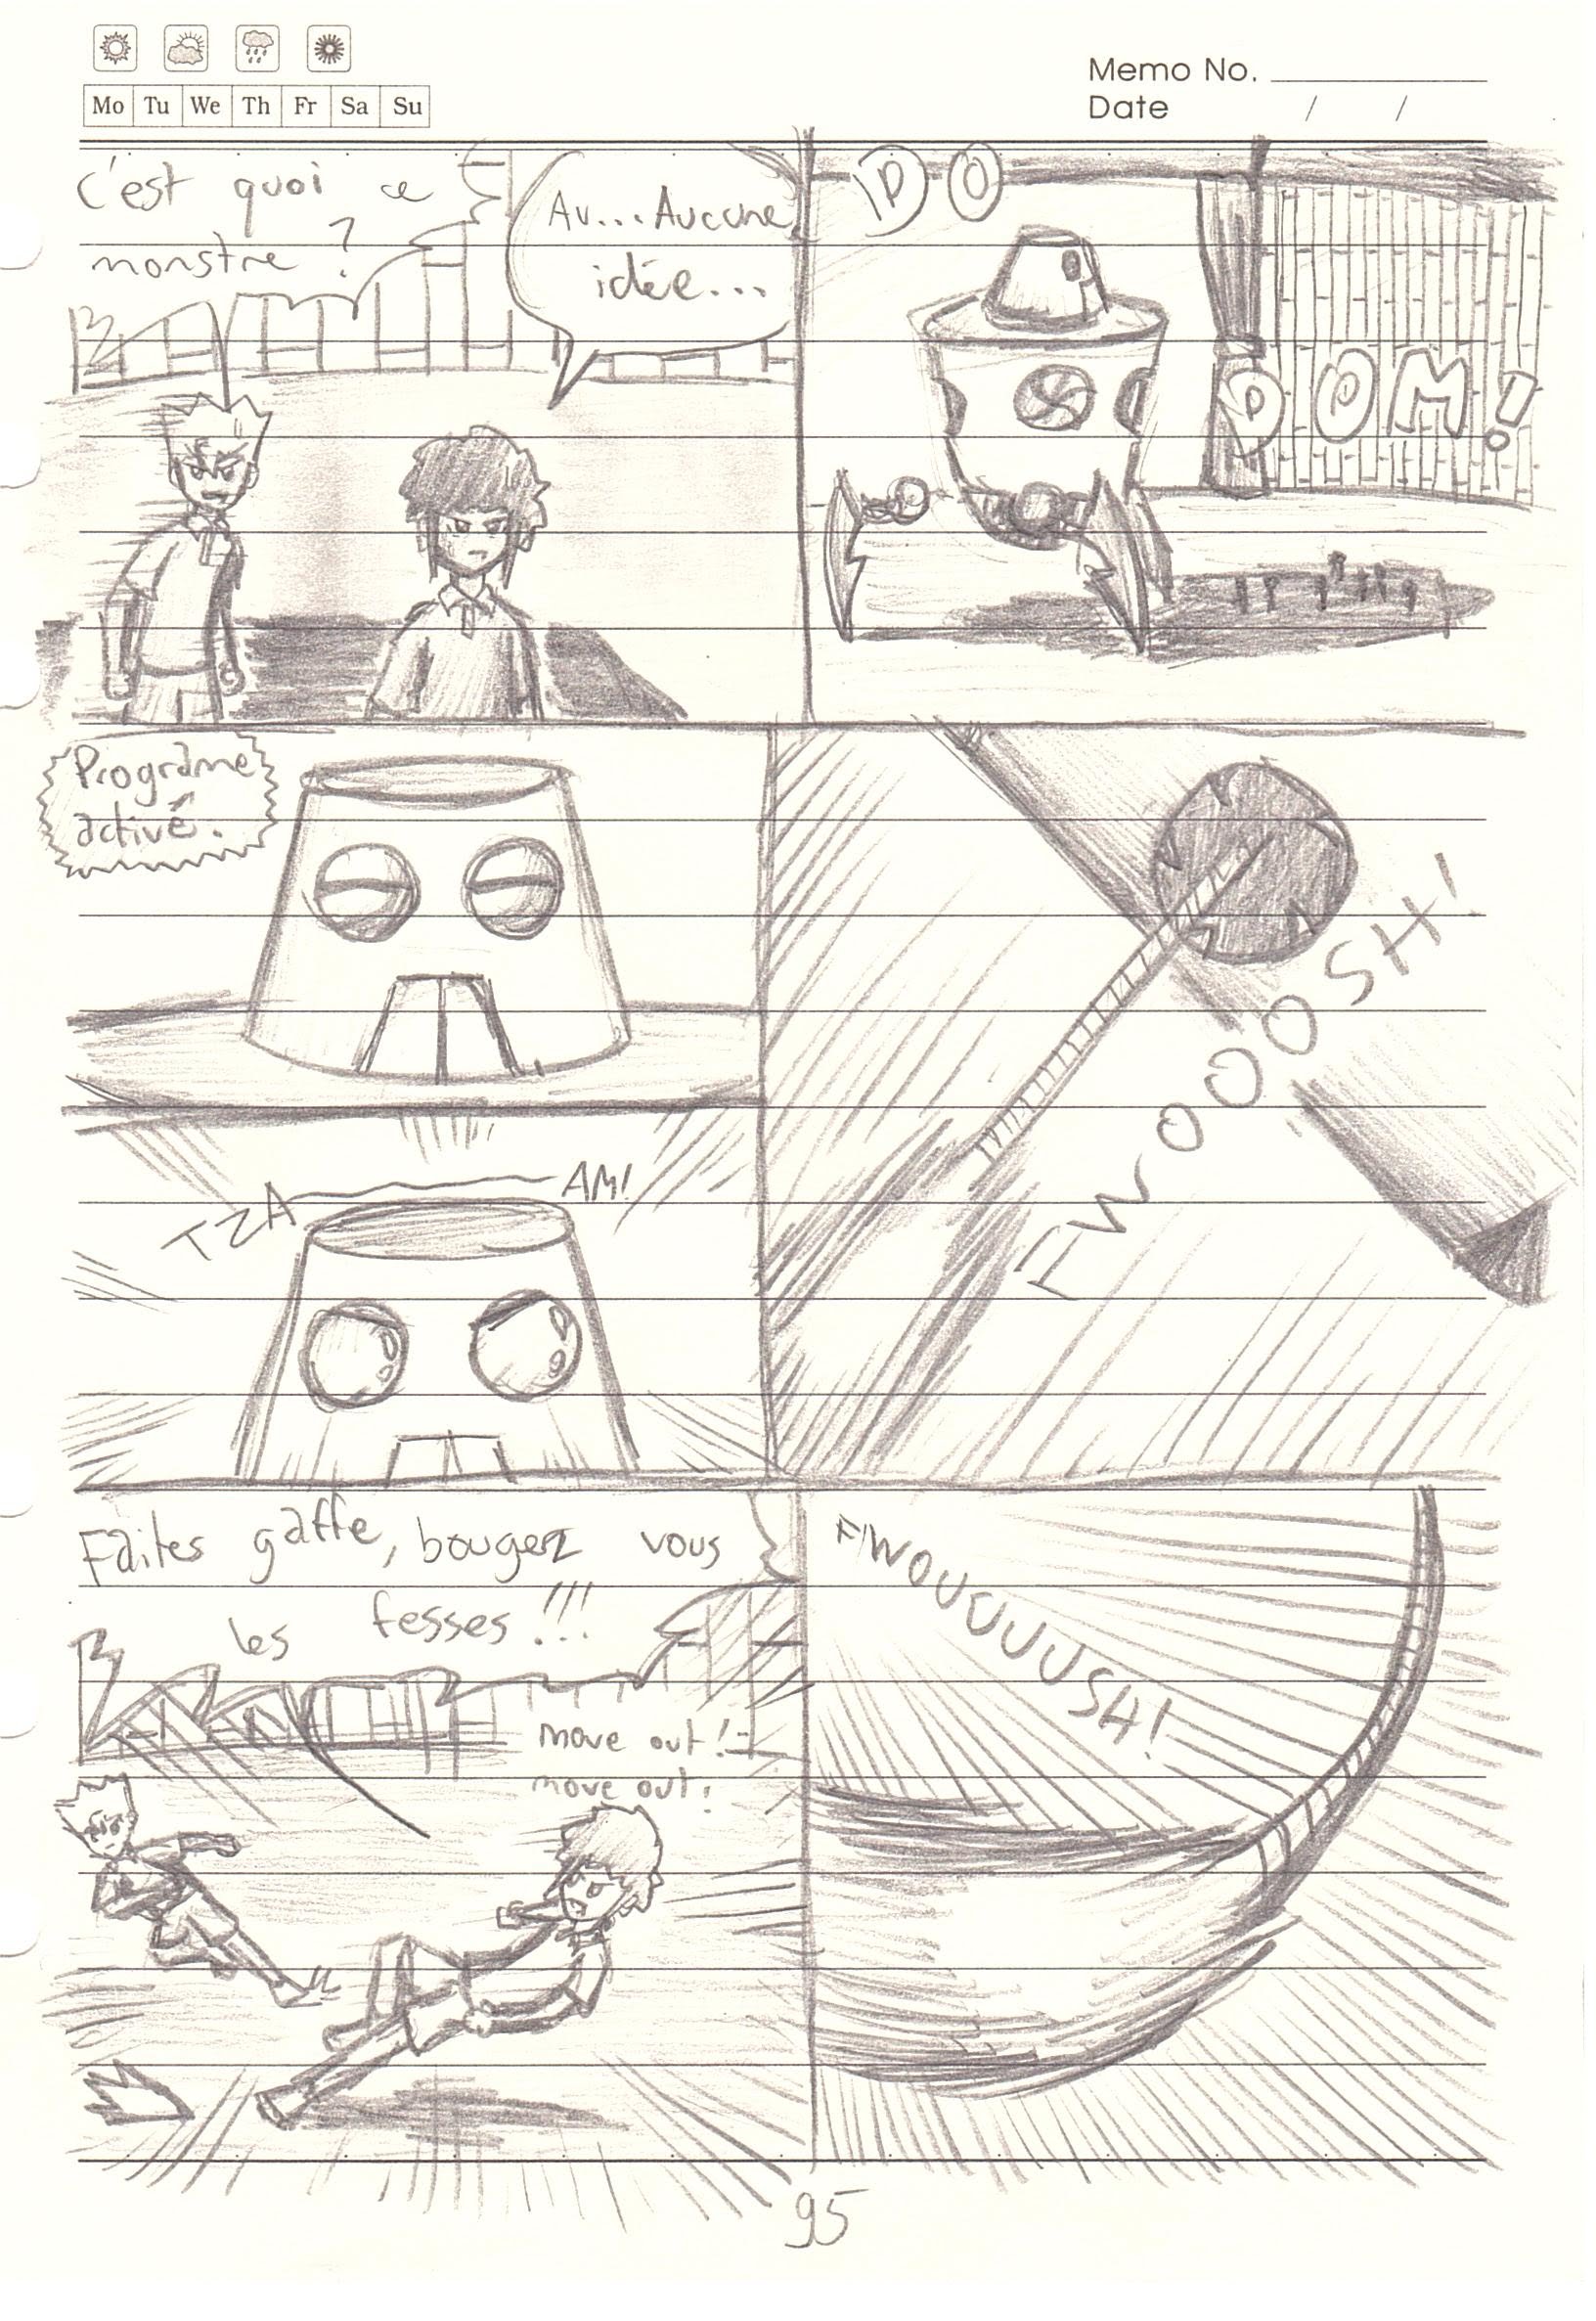 Memo No.
Mo Tu We Th Fr Sa Su
Date / /
c'est quoi ce
monstre ?
Au... Aucune
idée...
DO
DOM!
Programe
activé.
FWOOOOSH!
TZA AM!
Faites gaffe, bougez vous
les fesses !!!
move out!
move out!
FWOUUUUUSH!
95